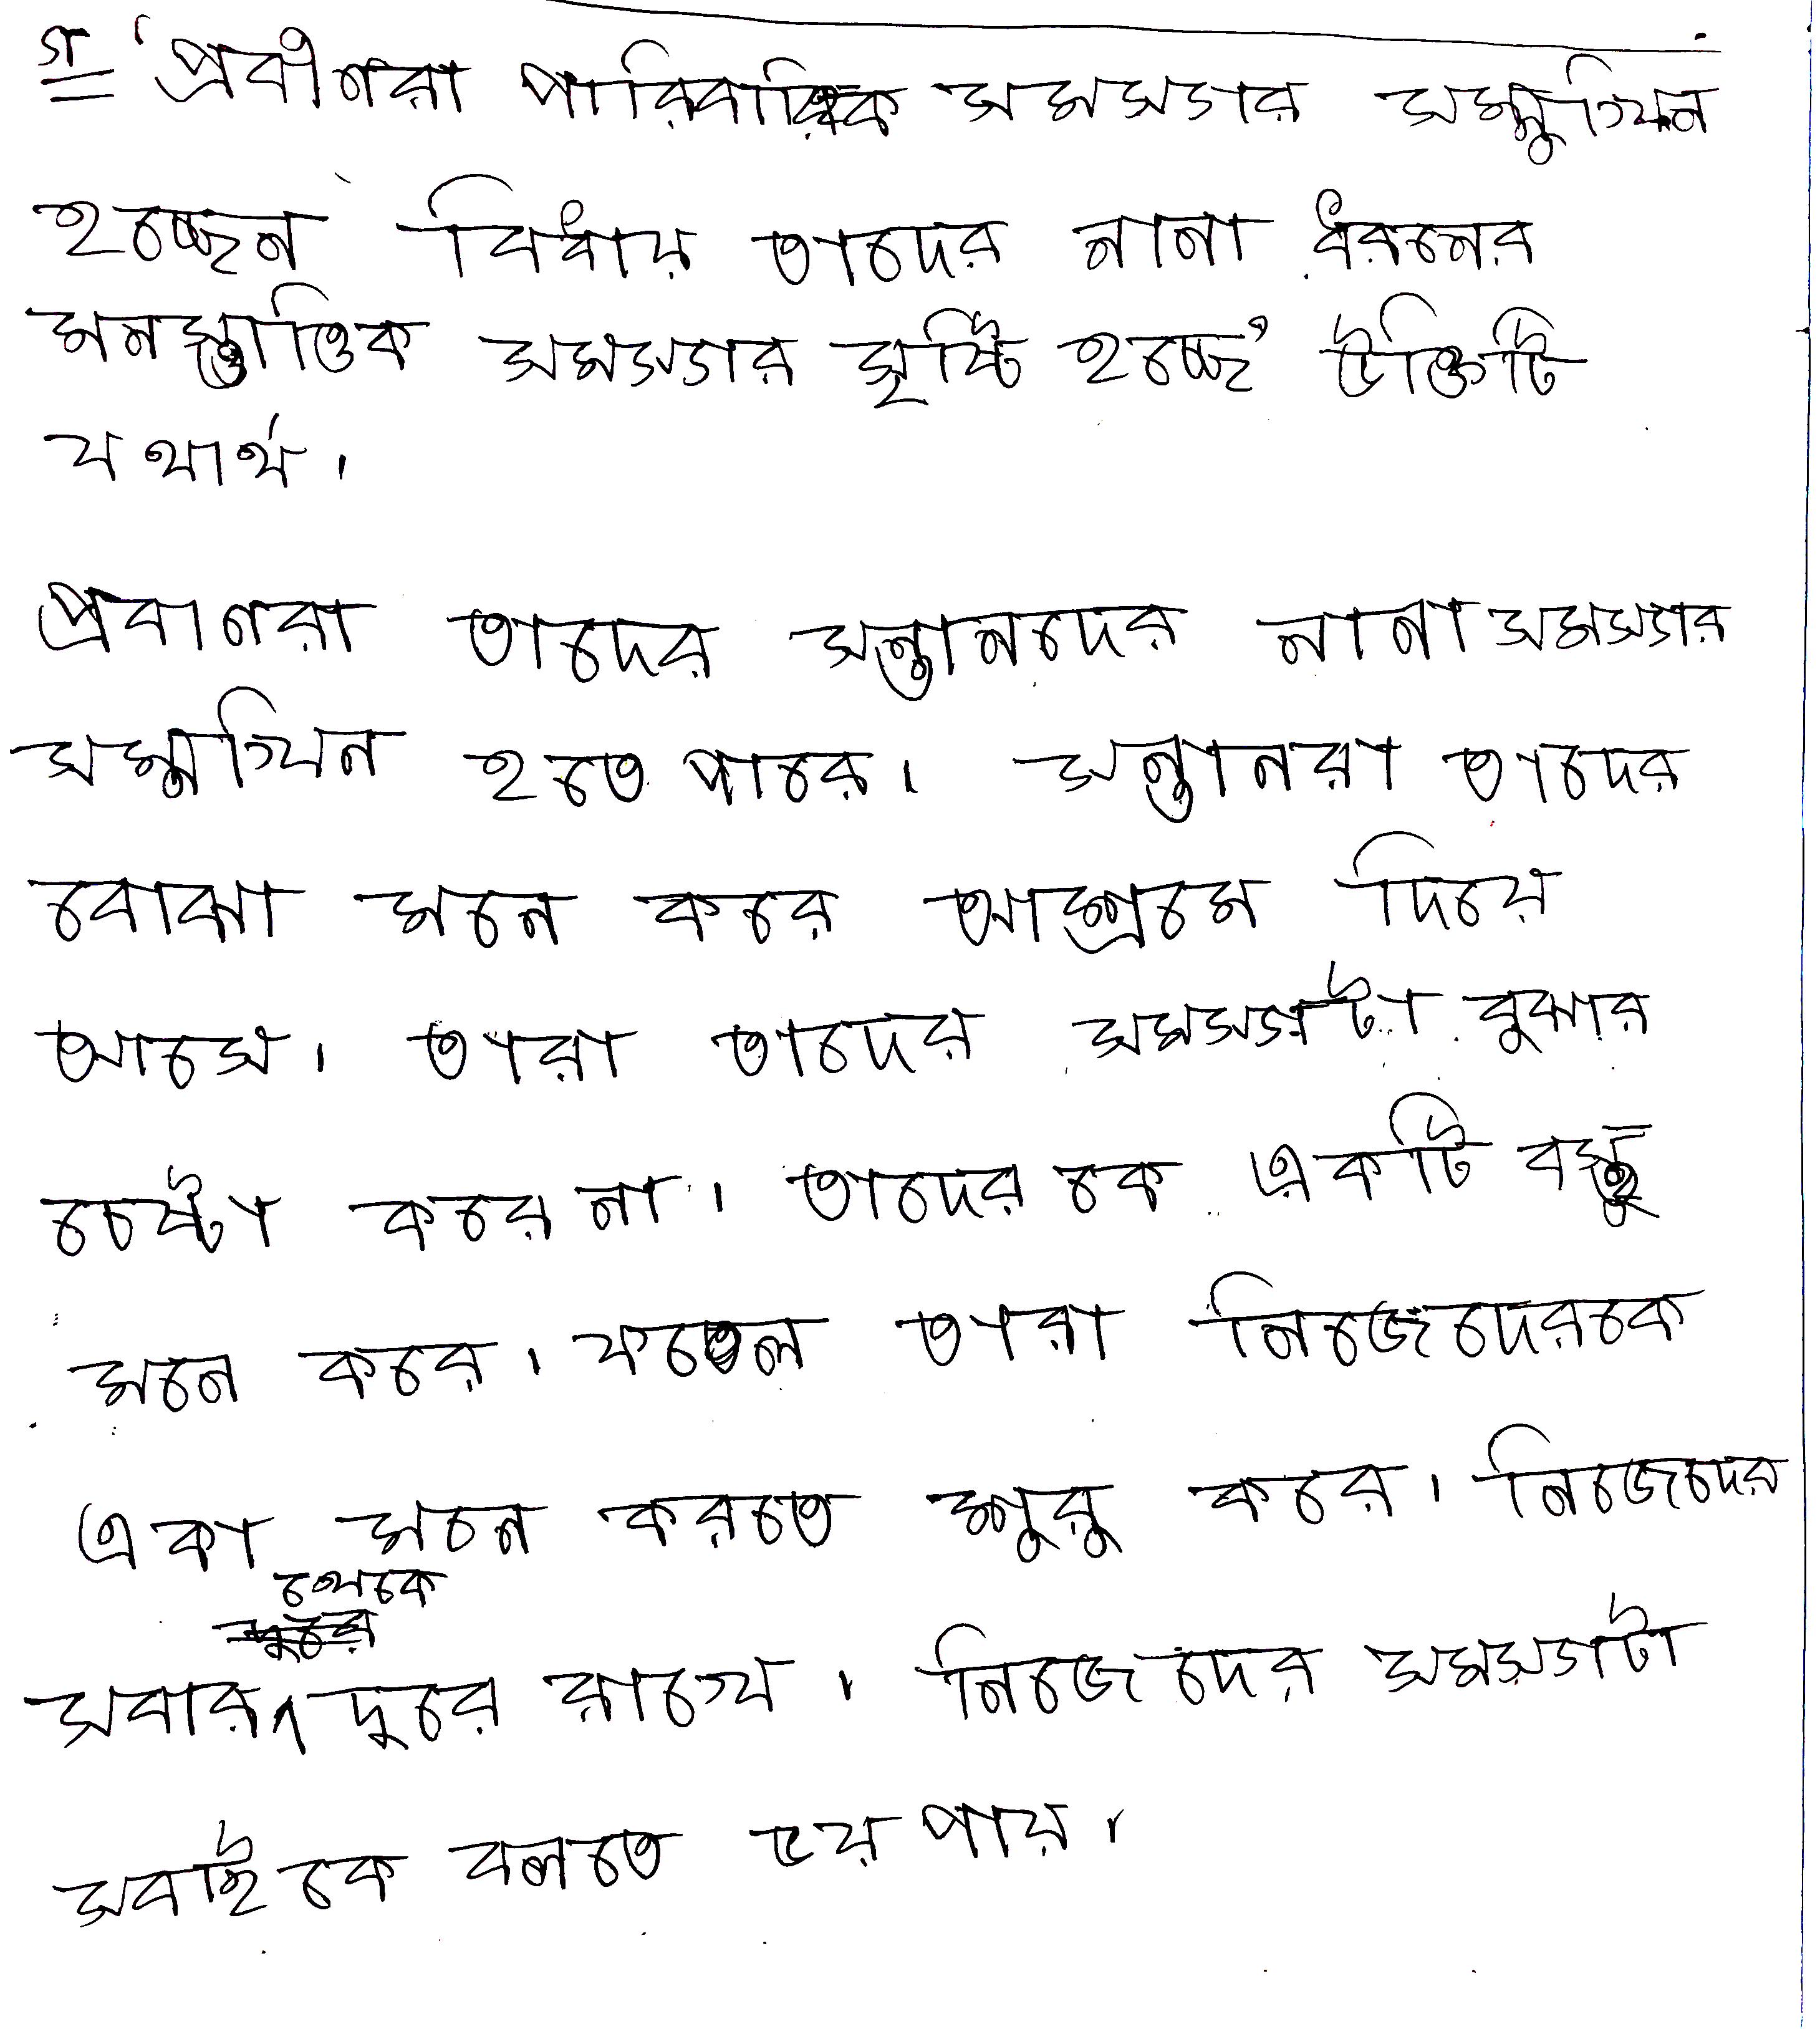 গ= 'প্রবীণরা পারিবারিক সমস্যার সম্মুখিন
হচ্ছেন বিধায় তাদের নানা ধরনের
মনস্তাত্তিক সমস্যার সৃষ্টি হচ্ছে' উক্তিটি
যথার্থ।
প্রবীণরা তাদের সন্তানদের নানা সমস্যার
সম্মুখিন হতে পারে। সন্তানরা তাদের
বোঝা মনে করে আশ্রমে দিয়ে
আসে। তারা তাদের সমস্যাটা বুঝার
চেষ্টা করে না। তাদের কে একটি বস্তু
মনে করে। ফলে তারা নিজেদেরকে
একা মনে করতে শুরু করে। নিজেদের
সবার থেকে দুরে রাখে। নিজেদের সমস্যাটা
সবাইকে বলতে ভয় পায়।